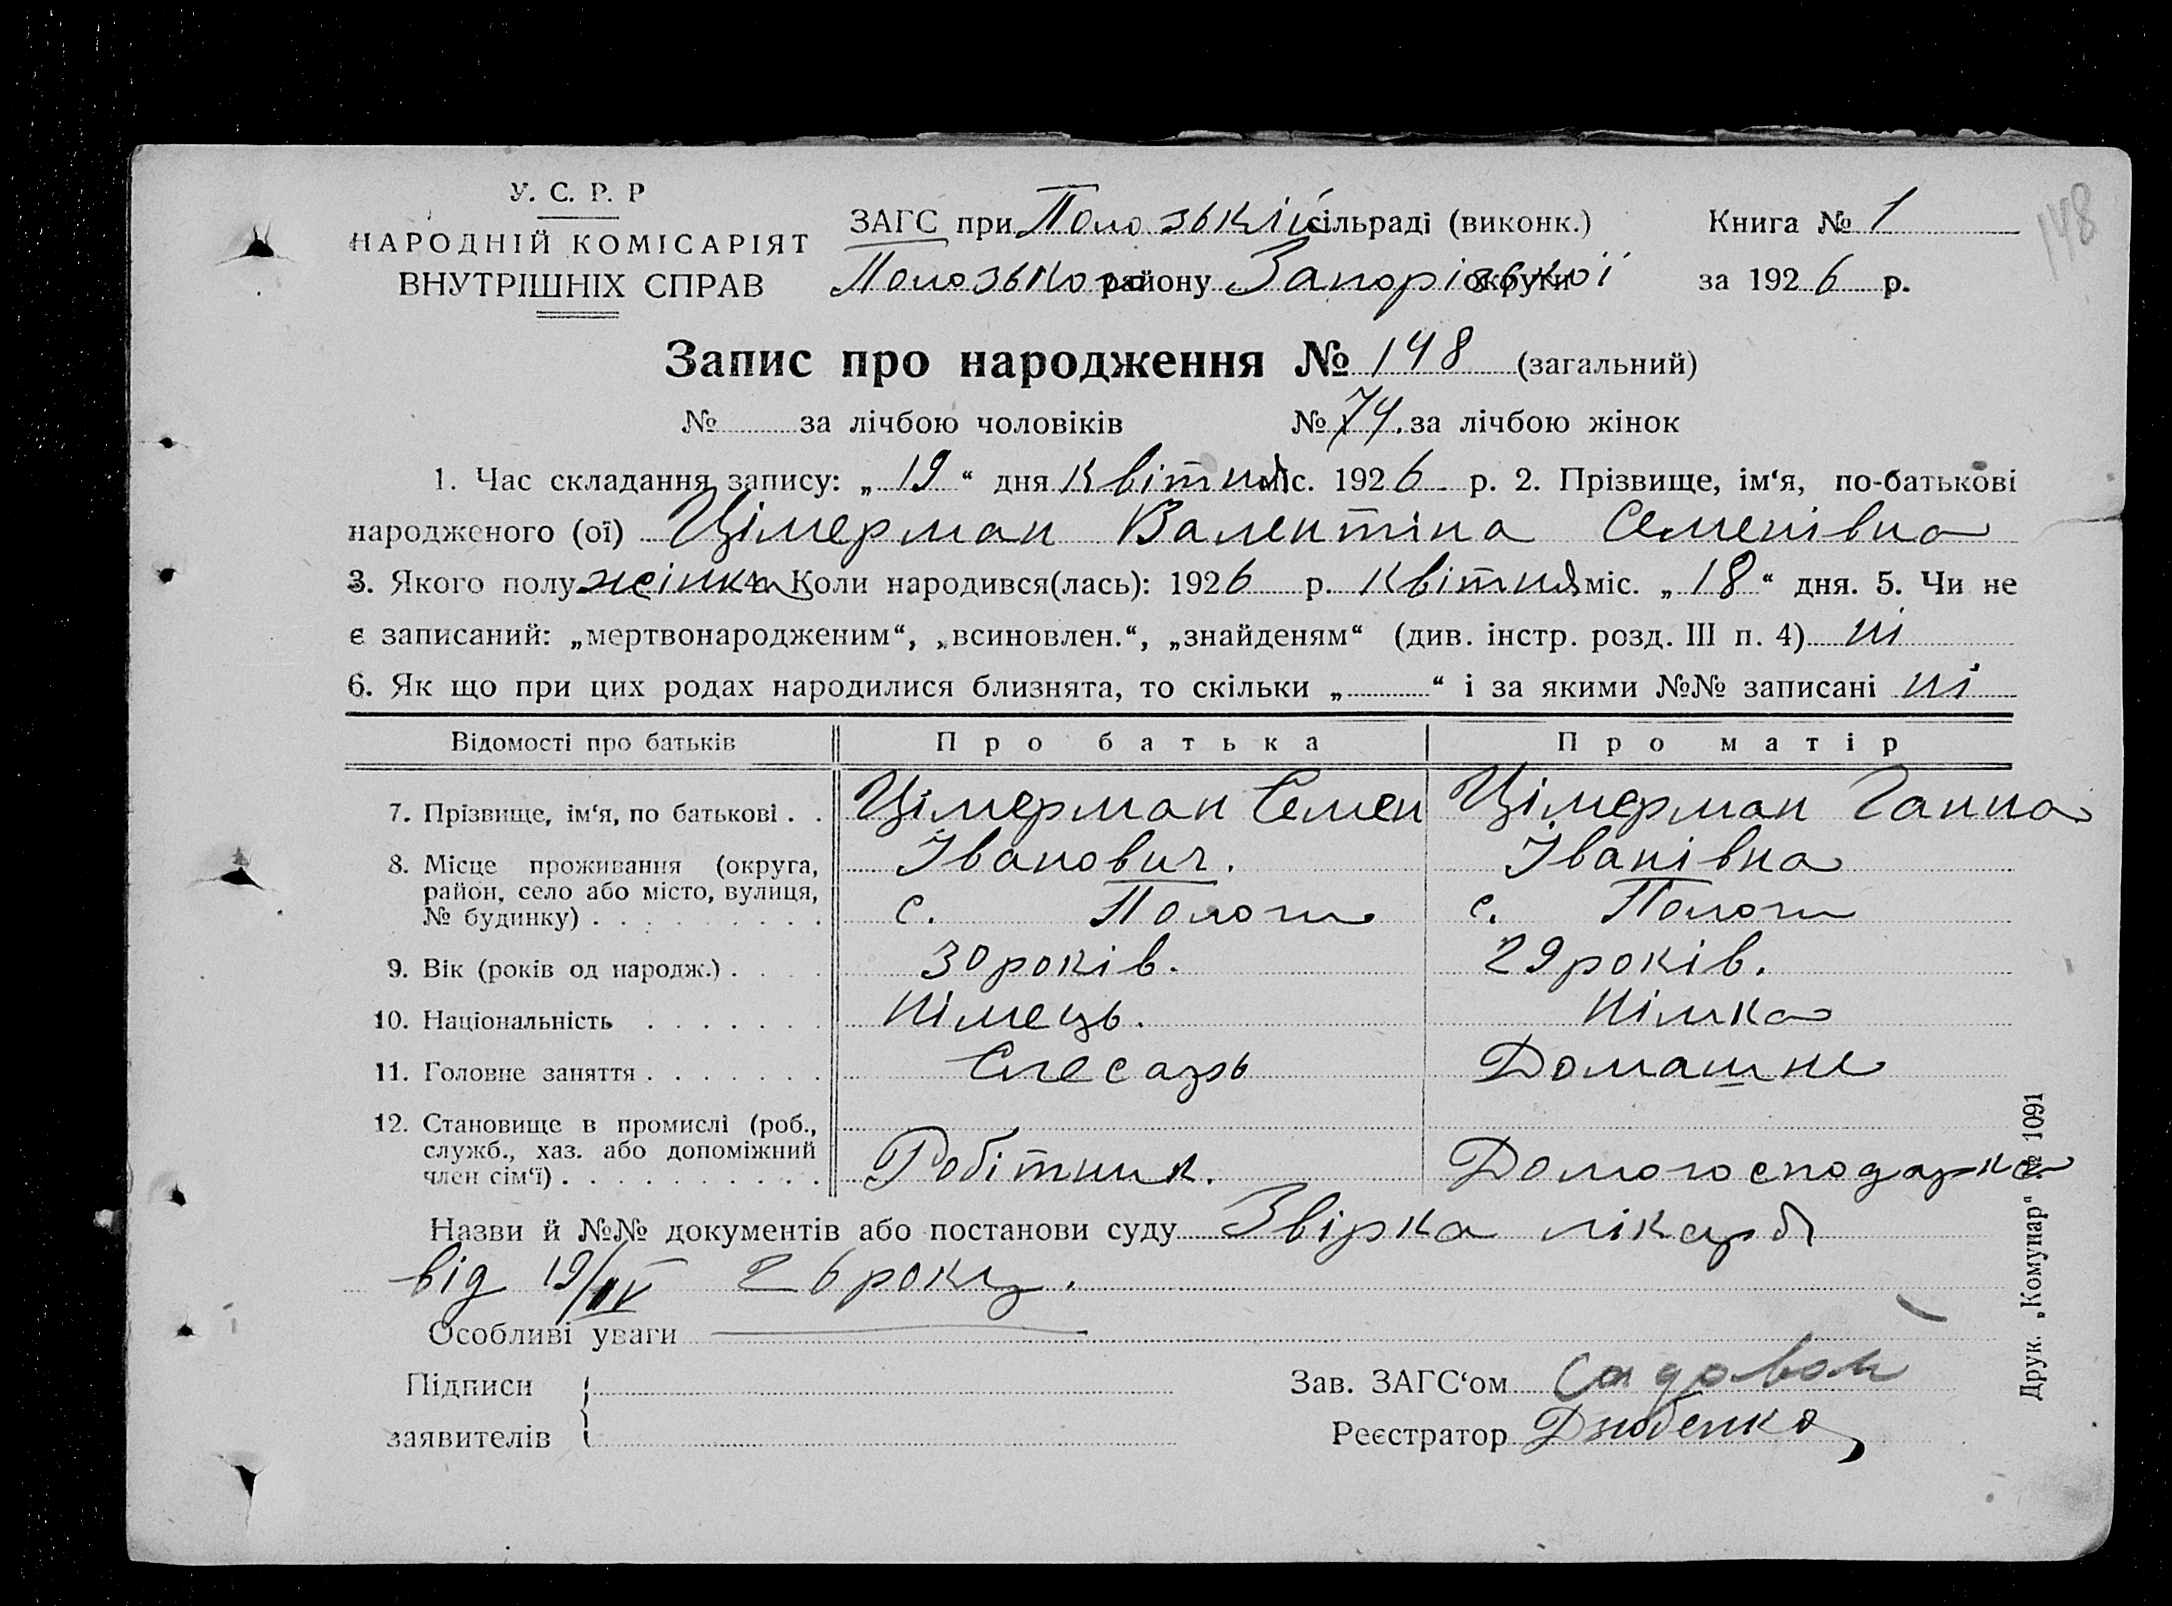 У. С. Р. Р
НАРОДНІЙ КОМІСАРІЯТ
ВНУТРІШНІХ СПРАВ
ЗАГС при Положській сільраді (виконк.)
Положського району Запорізької округи
Книга № 1
за 1926 р.
148
Запис про народження № 148 (загальний)
№ за лічбою чоловіків № 74. за лічбою жінок
1. Час складання запису: „19“ дня Квітня міс. 1926 р. 2. Прізвище, ім‘я, по-батькові
народженого (ої) Цімерман Валентіна Семенівна
3. Якого полу жінка 4. Коли народився(лась): 1926 р. Квітня міс. „18“ дня. 5. Чи не
є записаний: „мертвонародженим“, „всиновлен.“, „знайденям“ (див. інстр. розд. III п. 4) ні
6. Як що при цих родах народилися близнята, то скільки „ “ і за якими №№ записані ні
Відомості про батьків Про батька Про матір
7. Прізвище, ім‘я, по батькові . . Цімерман Семен Цімерман Ганна
Іванович. Іванівна
8. Місце проживання (округа,
район, село або місто, вулиця,
№ будинку) . . . . . . . . . с. Пологи с. Пологи
9. Вік (років од народж.) . . . . 30 років. 29 років.
10. Національність . . . . . . . Німець. Німка
11. Головне заняття . . . . . . . Слесарь Домашне
12. Становище в промислі (роб.,
служб., хаз. або допоміжний
член сім‘ї) . . . . . . . . . . Робітник. Домогосподарка
Назви й №№ документів або постанови суду Звірка лікаря
від 19/IV 26 року.
Особливі уваги
Підписи
заявителів
Зав. ЗАГС‘ом Садовой
Реєстратор Дзюбенко
Друк. „Комунар“ № 1091